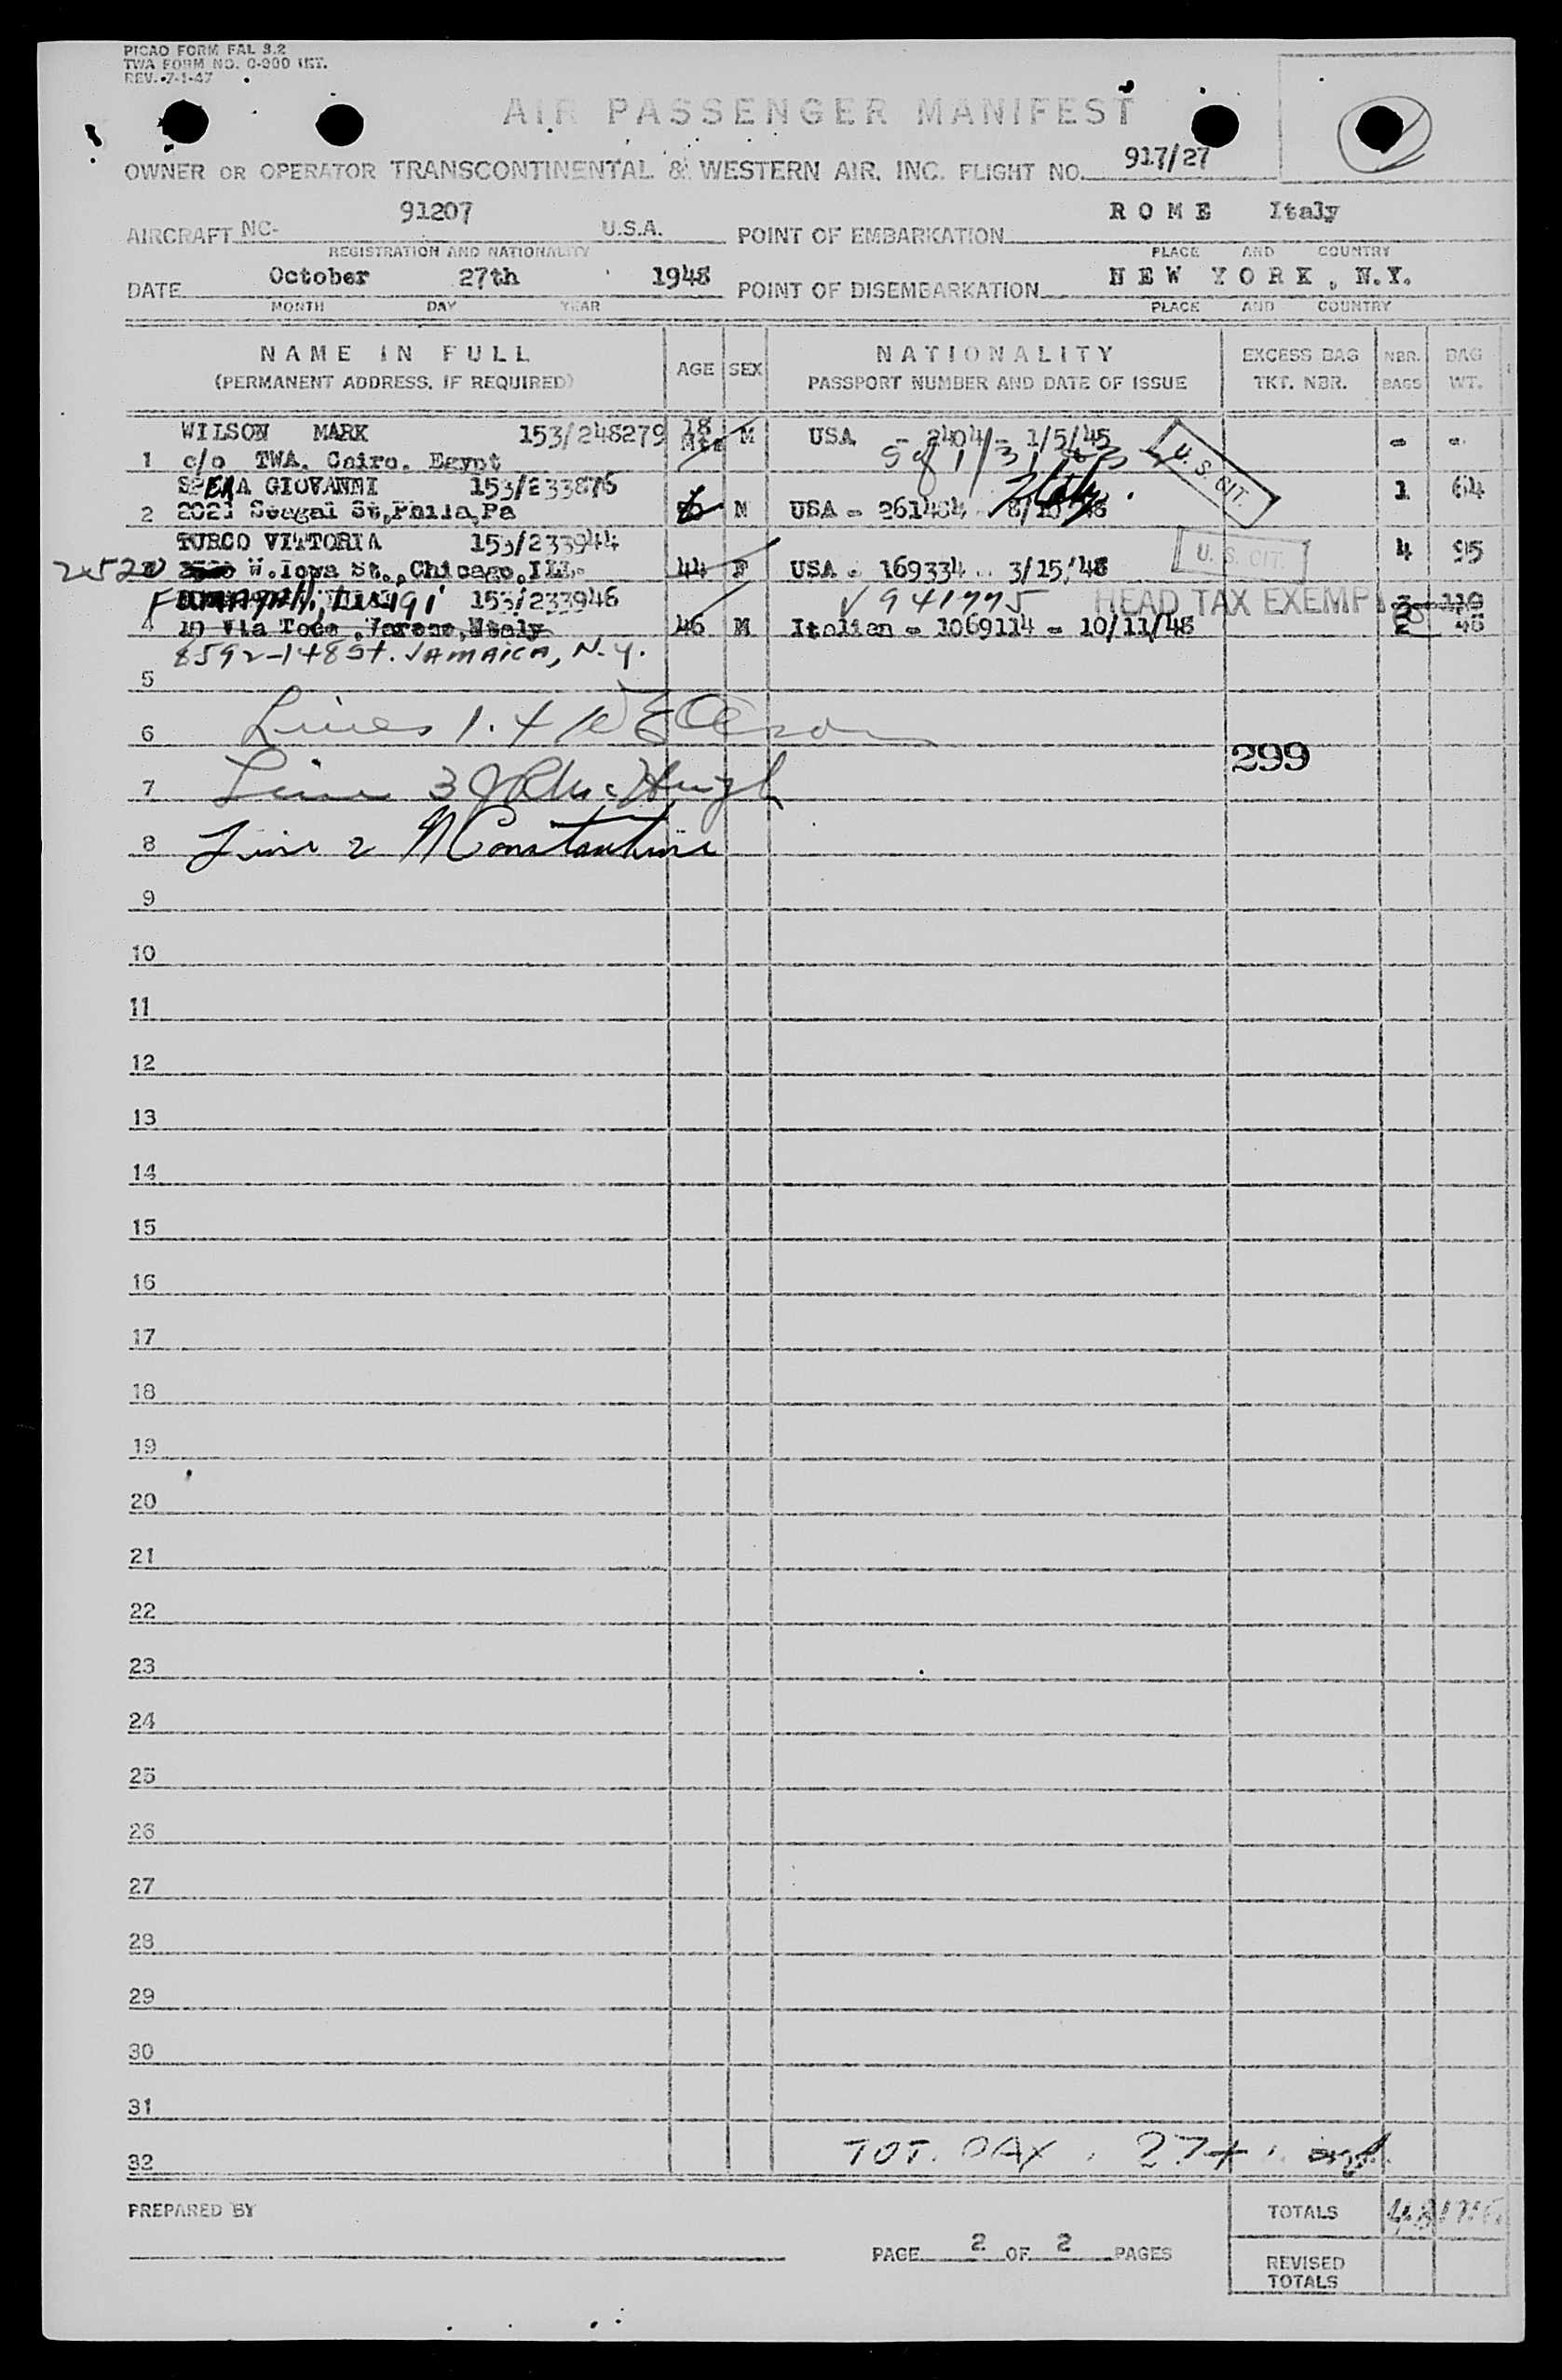 PICAO FORM FAL 3.2
TWA FORM NO. 0-900 INT.
REV. 7-1-47
AIR PASSENGER MANIFEST
OWNER OR OPERATOR TRANSCONTINENTAL & WESTERN AIR, INC. FLIGHT NO. 917/27
AIRCRAFT NC- 91207 U.S.A. POINT OF EMBARKATION ROME Italy
REGISTRATION AND NATIONALITY PLACE AND COUNTRY
DATE October 27th 1948 POINT OF DISEMBARKATION NEW YORK, N.Y.
MONTH DAY YEAR PLACE AND COUNTRY
NAME IN FULL AGE SEX NATIONALITY EXCESS BAG NBR. BAG
(PERMANENT ADDRESS, IF REQUIRED) PASSPORT NUMBER AND DATE OF ISSUE TKT. NBR. BAGS WT.
WILSON MARK 153/248279 18 Mts M USA - 2404 - 1/5/48 - -
1 c/o TWA, Cairo, Egypt U. S. CIT.
SPERA GIOVANNI 153/233876 1 64
2 2021 St, Phila, Pa M USA - 261484
TURCO VITTORIA 153/233944 U. S. CIT. 4 95
2520 W. Iowa St., Chicago, Ill. 44 F USA - 169334 - 3/15/48
Luigi 153/233946 V 941775 HEAD TAX EXEMPT 3 110
4 10 Via Italy 46 M Italian - 1069114 - 10/11/48 2 48
8592-148 St. JAMAICA, N.Y.
5
6 Lines 1.4
299
7 Line 3 McHugh
8 Line 2 Constantine
9
10
11
12
13
14
15
16
17
18
19
20
21
22
23
24
25
26
27
28
29
30
31
TOT. PAX 27+
32
PREPARED BY TOTALS
PAGE 2 OF 2 PAGES
REVISED
TOTALS